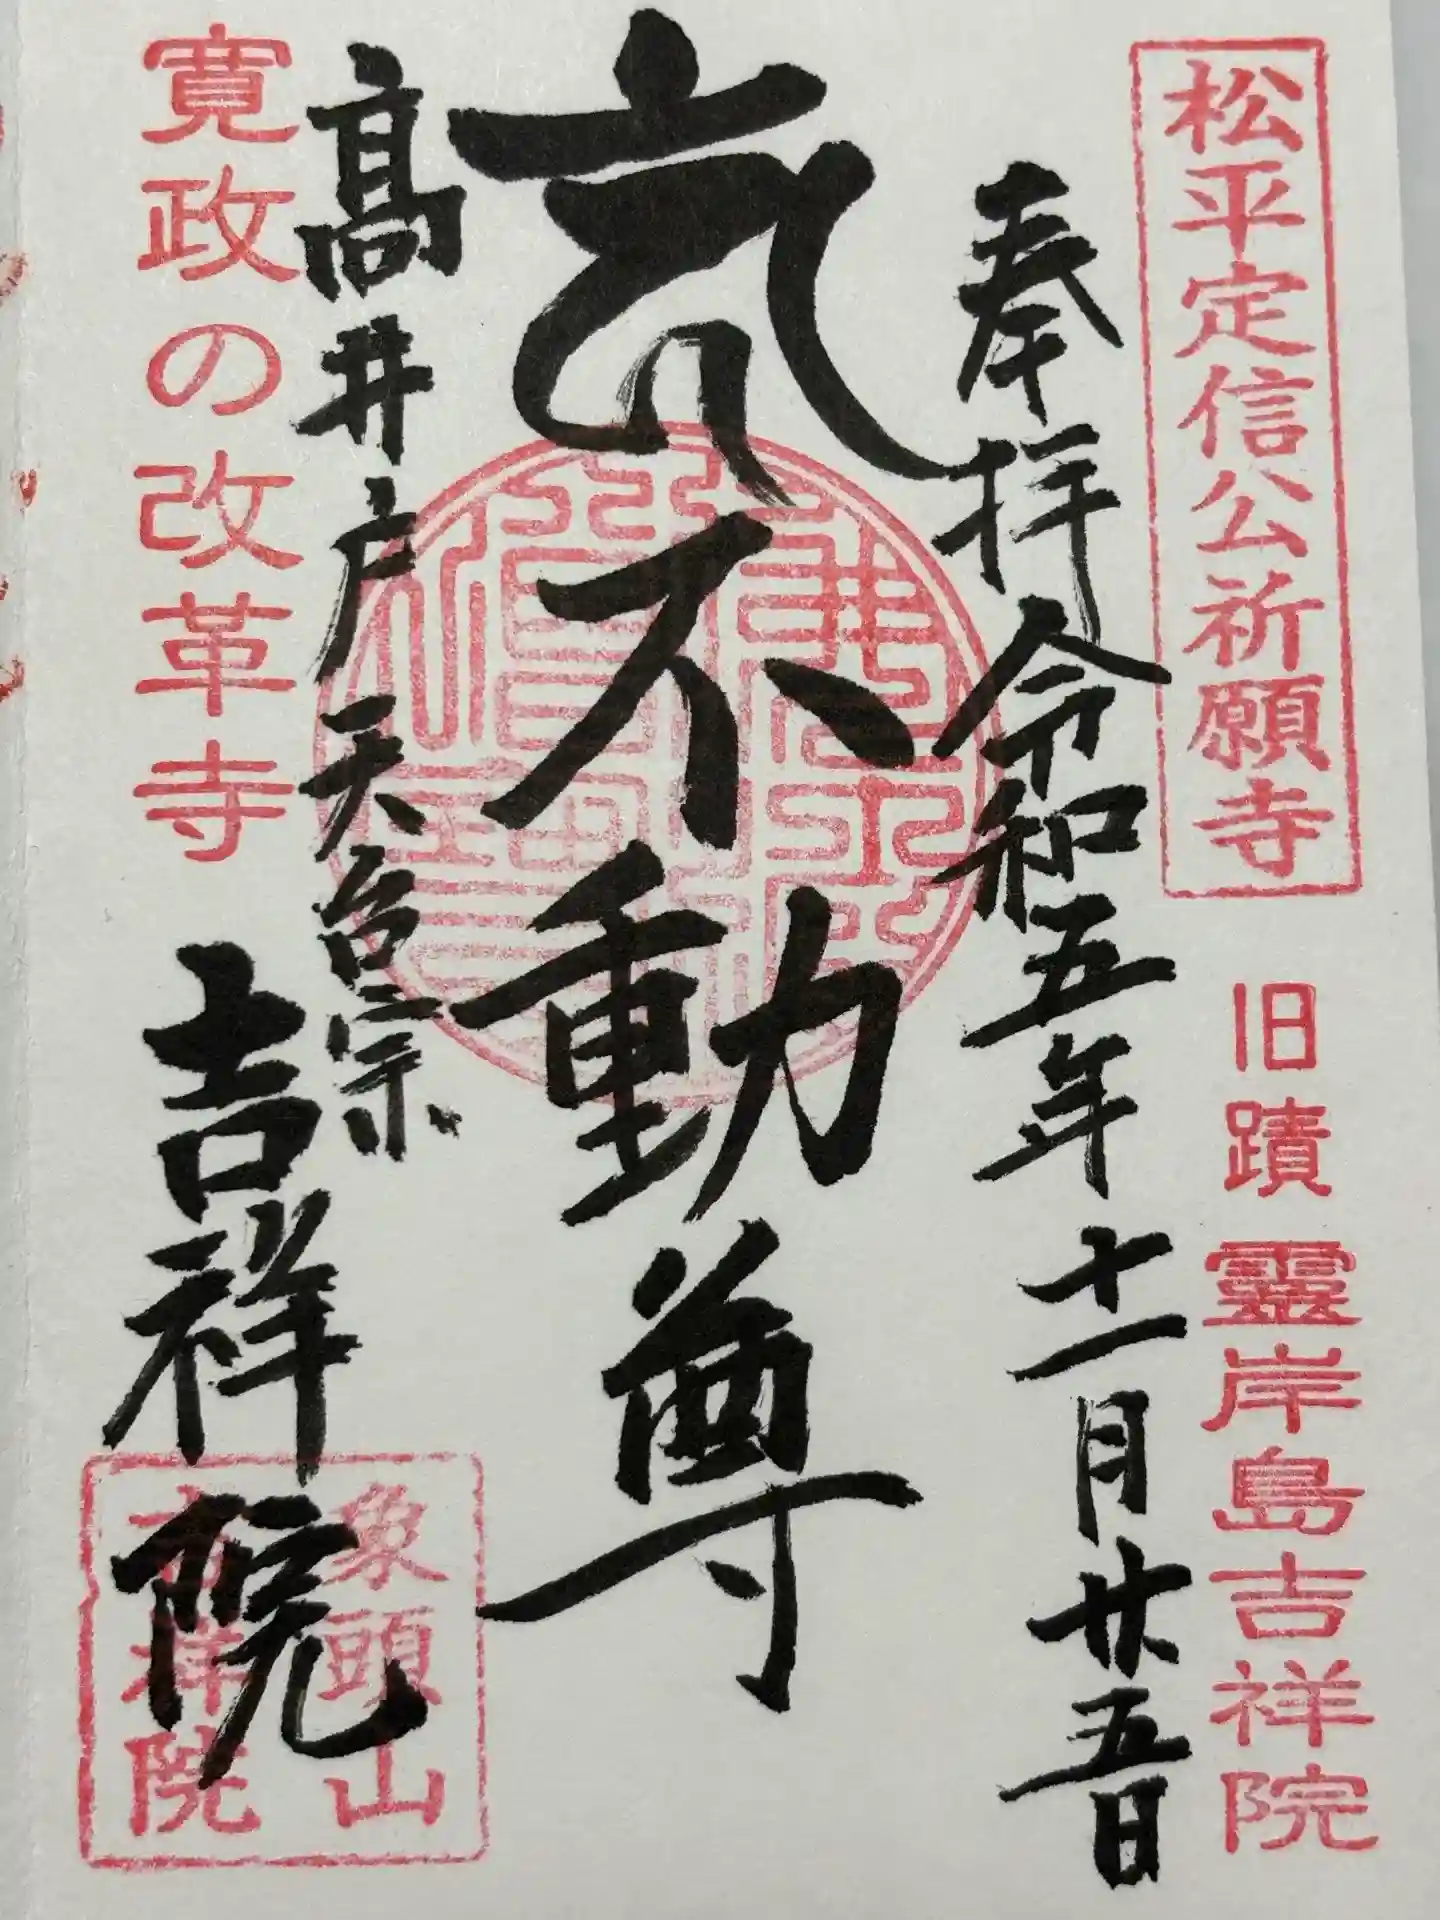 松平定信公祈願寺
旧蹟 靈岸島吉祥院
奉拝 令和五年十一月廿五日
不動尊
高井戸 天台宗
吉祥院
寛政の改革寺
象頭山
吉祥院